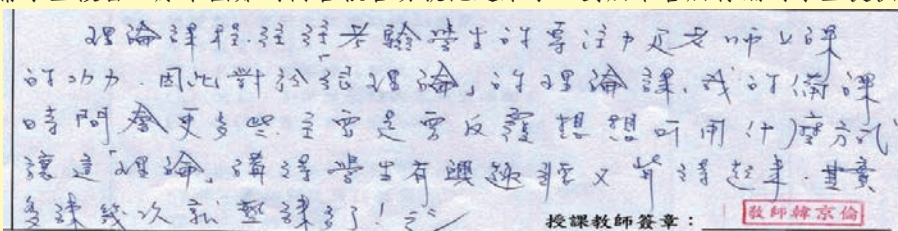 理論課程.往往考驗學生的專注力及老師上課
的功力.因此對於「很理論」的理論課.我的備課
時間會更多些.主要是要反覆想想可用什麼方式
讓這「理論」講得學生有興趣 又 得起來.其實
多課幾次就熟課了!
授課教師簽章:
教師韓京倫